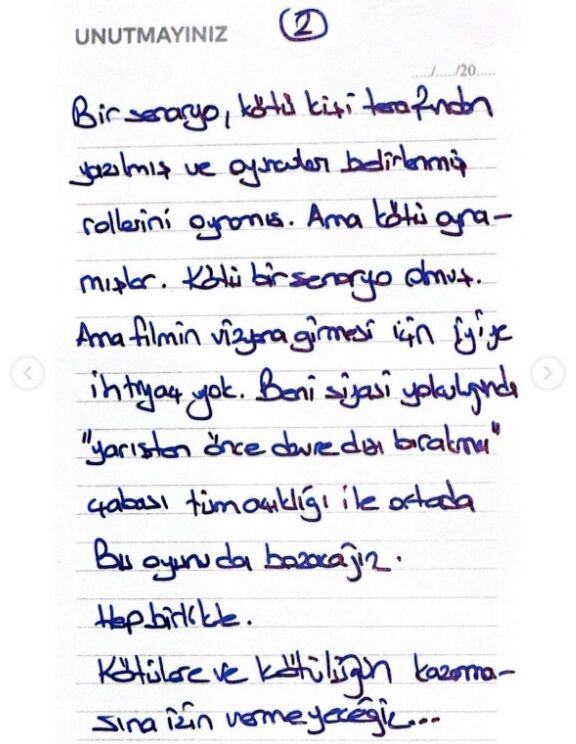 UNUTMAYINIZ 2
...../...../20.....
Bir senaryo, kötü kişi tarafından
yazılmış ve oyuncular belirlenmiş
rollerini oynamış. Ama kötü oyna-
mışlar. Kötü bir senaryo olmuş.
Ama filmin vizyona girmesi için iyiye
ihtiyaç yok. Beni siyasi yolculuğunda
"yarıştan önce devre dışı bırakma"
çabası tüm açıklığı ile ortada
Bu oyunu da bozacağız.
Hep birlikte.
Kötülere ve kötülüğün kazanma-
sına izin vermeyeceğiz...